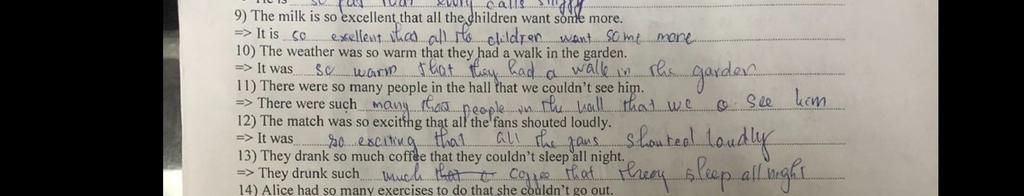 so fast that every calls
9) The milk is so excellent that all the children want some more.
=> It is so exellent that all the children want some more
10) The weather was so warm that they had a walk in the garden.
=> It was so warm that they had a walk in the garden
11) There were so many people in the hall that we couldn't see him.
=> There were such many people in the hall that we see him
12) The match was so exciting that all the fans shouted loudly.
=> It was so exciting that all the fans shouted loudly
13) They drank so much coffee that they couldn't sleep all night.
=> They drunk such much coffee that they sleep all night
14) Alice had so many exercises to do that she couldn't go out.